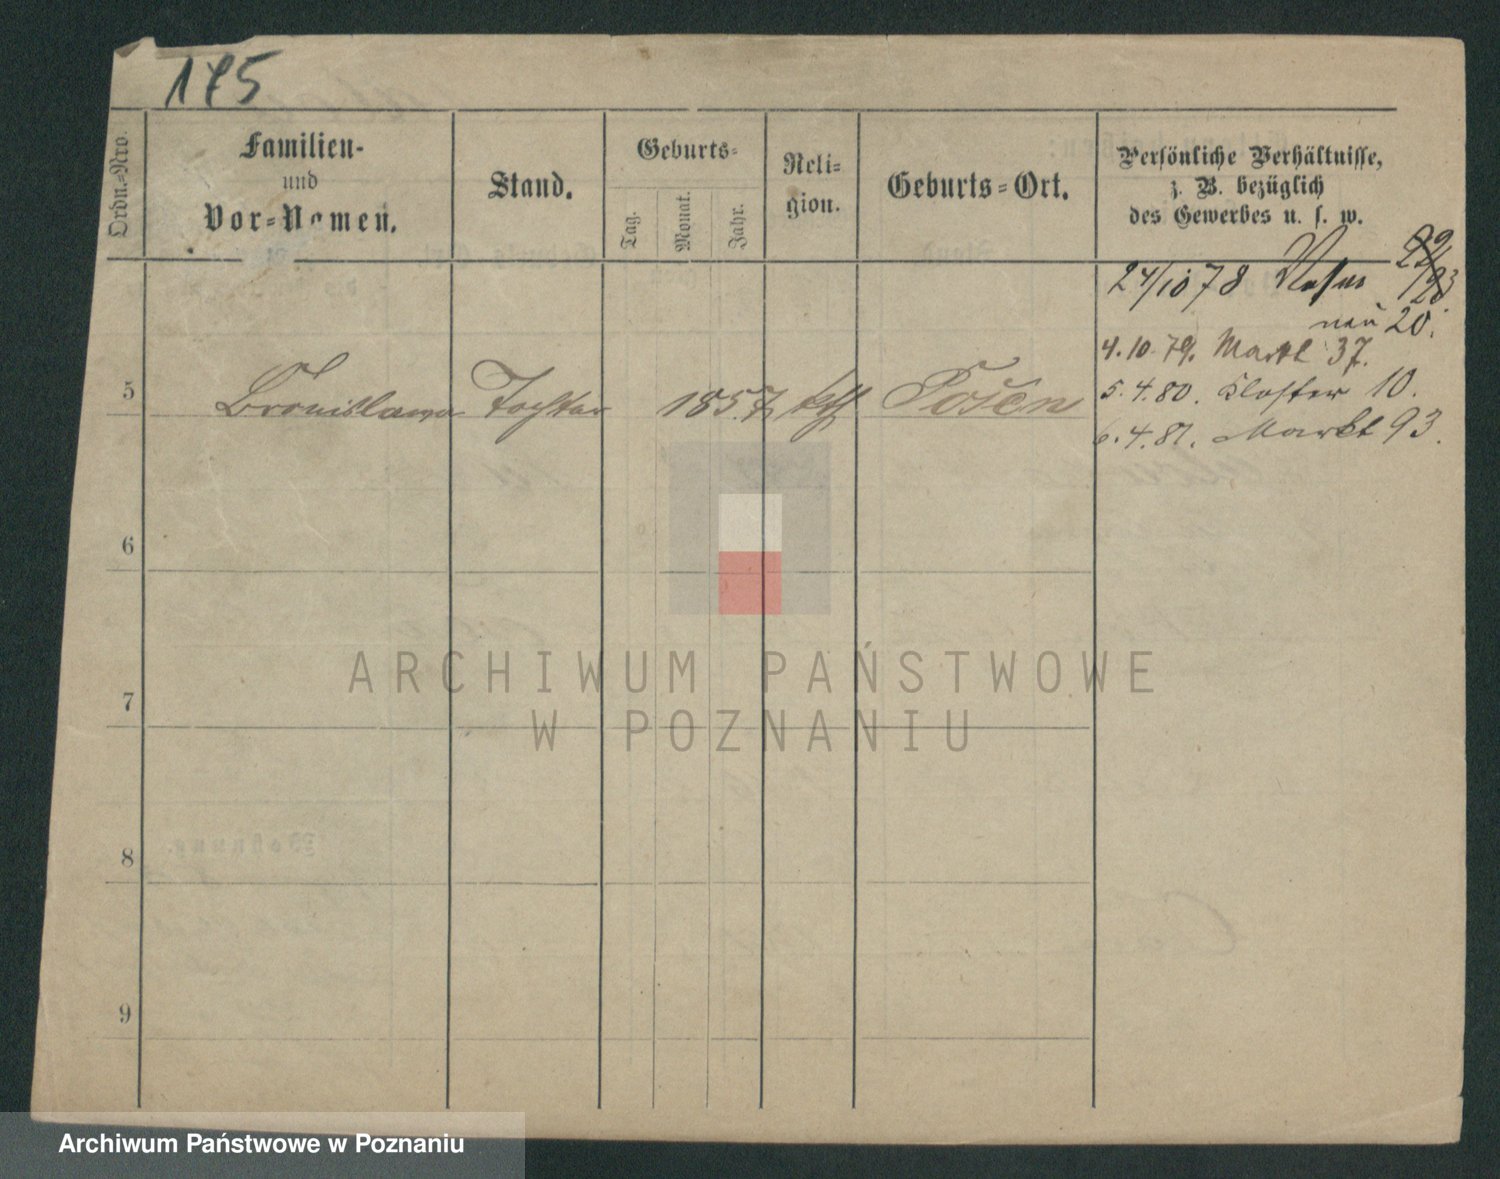 175
Ordn.-Nro.
Familien-
und
Vor-Namen.
Stand.
Geburts-
Tag.
Monat.
Jahr.
Reli-
gion.
Geburts-Ort.
Persönliche Verhältnisse,
z. B. bezüglich
des Gewerbes u. s. w.
24/10 78
neu 20.
4.10.79. Markt 37.
5 Bronislawa Tochter 1857 kth Posen
5.4.80. Kloster 10.
6.4.81. Markt 93.
6
7
8
9
ARCHIWUM PAŃSTWOWE
W POZNANIU
Wohnung.
Archiwum Państwowe w Poznaniu